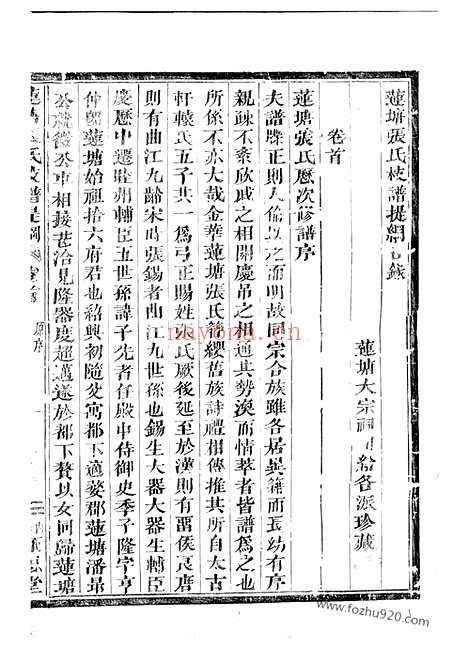 蓮塘張氏枝譜提綱目錄
蓮塘大宗祠 給各派珍藏
卷首
蓮塘張氏歷次修譜序
夫譜牒正則人倫以之而明故同宗合族雖各居異籍而長幼有序
親疎不紊欣戚之相關慶吊之相通其勢渙而情萃者皆譜為之也
所係不亦大哉金華蓮塘張氏簪纓舊族詩禮相傳推其所自太古
軒轅氏五子共一為弓正賜姓張氏厥後延至於漢則有畱侯良唐
則有曲江九齡宋時張錫者曲江九世孫也錫生大器大器生輔臣
慶歷中遷睦州輔臣五世孫諱子先者任殿中侍御史季子隆字亨
仲卽蓮塘始祖拾六府君也紹興初隨父寓都下適婺郡蓮塘潘最
公 微公車相接甚洽見隆器度超邁遂於都下贅以女同歸蓮塘
蓮塘張氏枝譜提綱 卷首 原序 一
www.fozhu920.com
nayona.cn